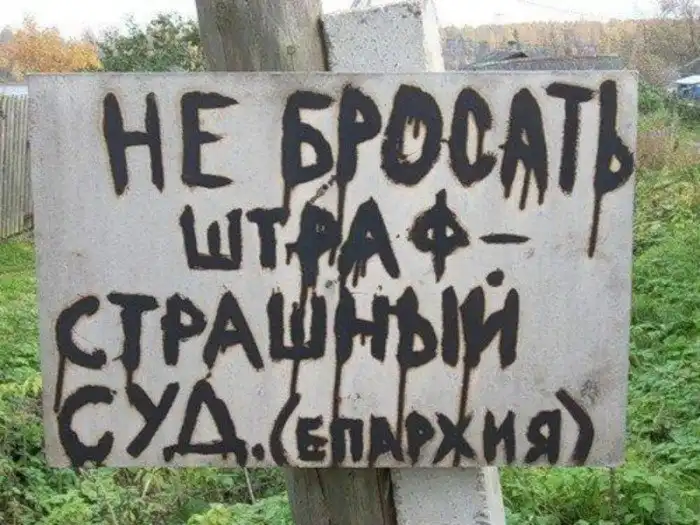 НЕ БРОСАТЬ
ШТРАФ-
СТРАШНЫЙ
СУД. (ЕПАРХИЯ)